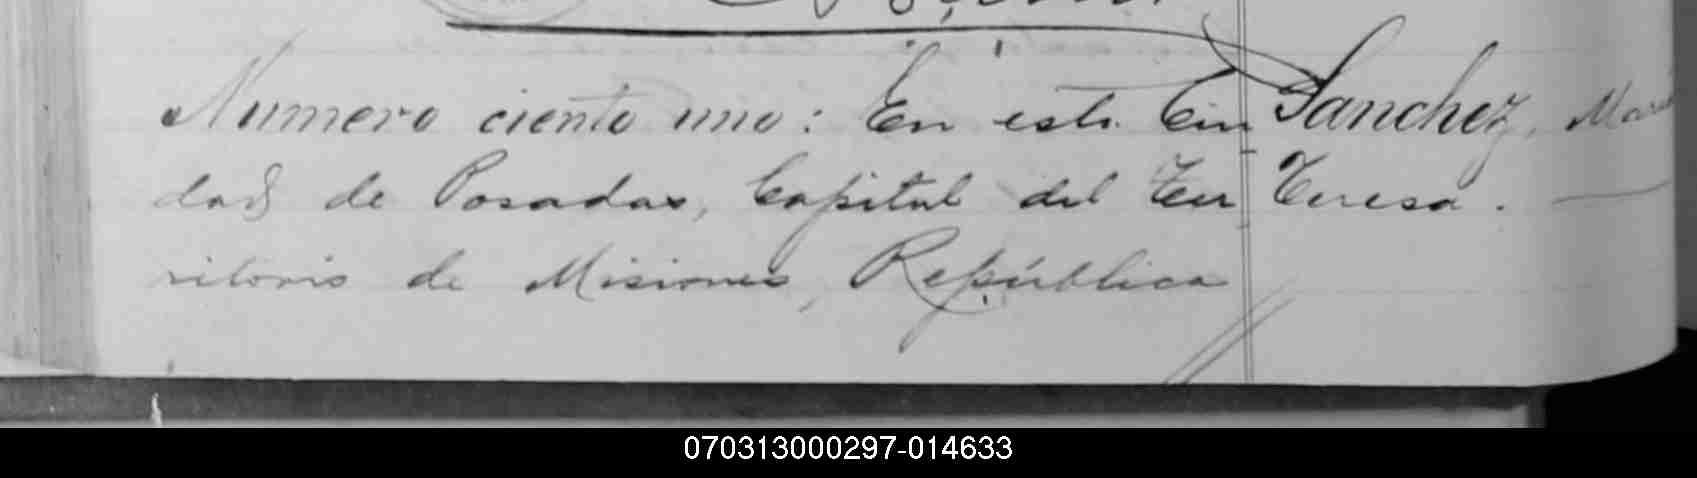 Numero ciento uno: En esta Ciu
dad de Posadas, Capital del Ter
ritorio de Misiones, República
Sanchez,
Teresa.
070313000297-014633